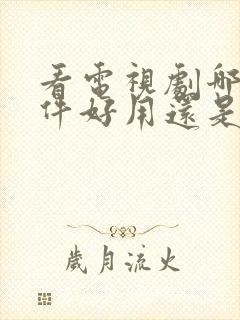 看電視劇哪
件好用還是
歲月流火